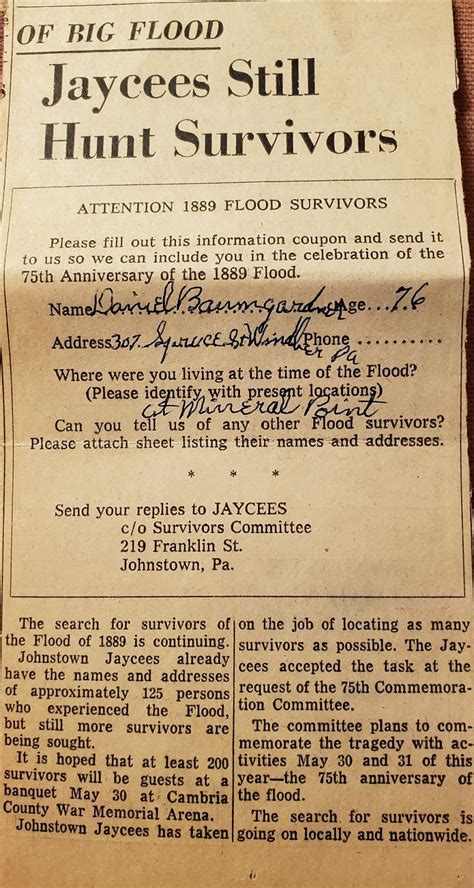 OF BIG FLOOD
Jaycees Still
Hunt Survivors
ATTENTION 1889 FLOOD SURVIVORS
Please fill out this information coupon and send it
to us so we can include you in the celebration of the
75th Anniversary of the 1889 Flood.
Name Daniel Baumgardner Age....76
Address 307 Spruce St Windber Pa Phone ..........
Where were you living at the time of the Flood?
(Please identify with present locations)
at Mineral Point
Can you tell us of any other Flood survivors?
Please attach sheet listing their names and addresses.
* * *
Send your replies to JAYCEES
c/o Survivors Committee
219 Franklin St.
Johnstown, Pa.
The search for survivors of
the Flood of 1889 is continuing.
Johnstown Jaycees already
have the names and addresses
of approximately 125 persons
who experienced the Flood,
but still more survivors are
being sought.
It is hoped that at least 200
survivors will be guests at a
banquet May 30 at Cambria
County War Memorial Arena.
Johnstown Jaycees has taken
on the job of locating as many
survivors as possible. The Jay-
cees accepted the task at the
request of the 75th Commemora-
tion Committee.
The committee plans to com-
memorate the tragedy with ac-
tivities May 30 and 31 of this
year—the 75th anniversary of
the flood.
The search for survivors is
going on locally and nationwide.